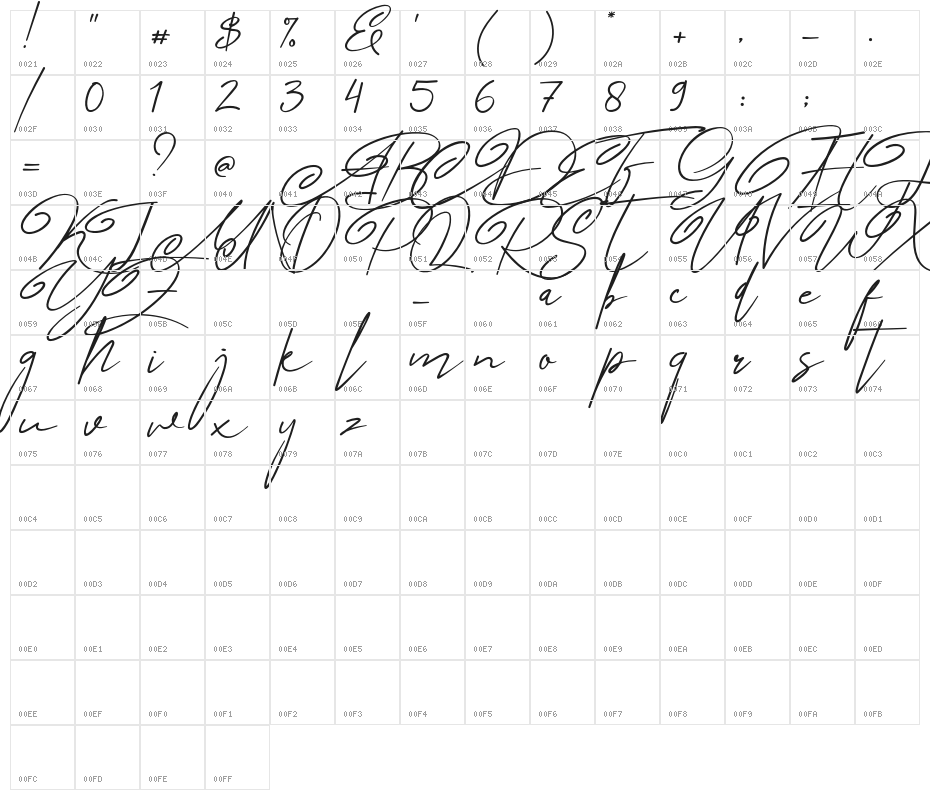 ! " # $ % & ' ( ) * + , - .
0021 0022 0023 0024 0025 0026 0027 0028 0029 002A 002B 002C 002D 002E
/ 0 1 2 3 4 5 6 7 8 9 : ;
002F 0030 0031 0032 0033 0034 0035 0036 0037 0038 0039 003A 003B 003C
= ? @ A B C D E F G H I J
003D 003E 003F 0040 0041 0042 0043 0044 0045 0046 0047 0048 0049 004A
K L M N O P Q R S T U V W X
004B 004C 004D 004E 004F 0050 0051 0052 0053 0054 0055 0056 0057 0058
Y Z _ a b c d e f
0059 005A 005B 005C 005D 005E 005F 0060 0061 0062 0063 0064 0065 0066
g h i j k l m n o p q r s t
0067 0068 0069 006A 006B 006C 006D 006E 006F 0070 0071 0072 0073 0074
u v w x y z
0075 0076 0077 0078 0079 007A 007B 007C 007D 007E 00C0 00C1 00C2 00C3
00C4 00C5 00C6 00C7 00C8 00C9 00CA 00CB 00CC 00CD 00CE 00CF 00D0 00D1
00D2 00D3 00D4 00D5 00D6 00D7 00D8 00D9 00DA 00DB 00DC 00DD 00DE 00DF
00E0 00E1 00E2 00E3 00E4 00E5 00E6 00E7 00E8 00E9 00EA 00EB 00EC 00ED
00EE 00EF 00F0 00F1 00F2 00F3 00F4 00F5 00F6 00F7 00F8 00F9 00FA 00FB
00FC 00FD 00FE 00FF